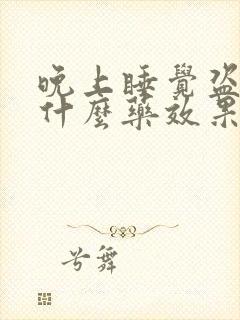 晚上睡覺盜
什麼藥效果
兮舞